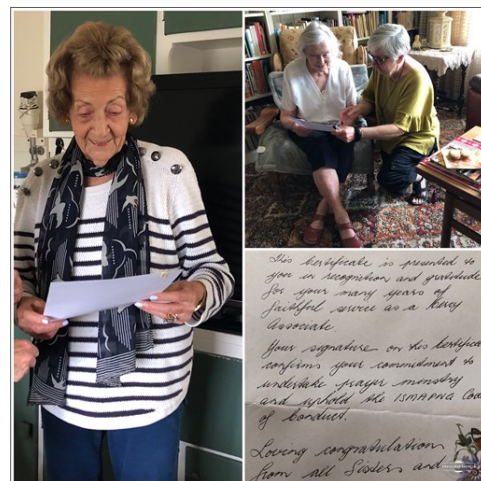 This Certificate is presented to
you in recognition and gratitude
for your many years of
faithful service as a Mercy
Associate.
Your signature on this Certificate
confirms your commitment to
undertake prayer ministry
and uphold the ISMAPNG Code
of Conduct.
Loving congratulation
from all Sisters and